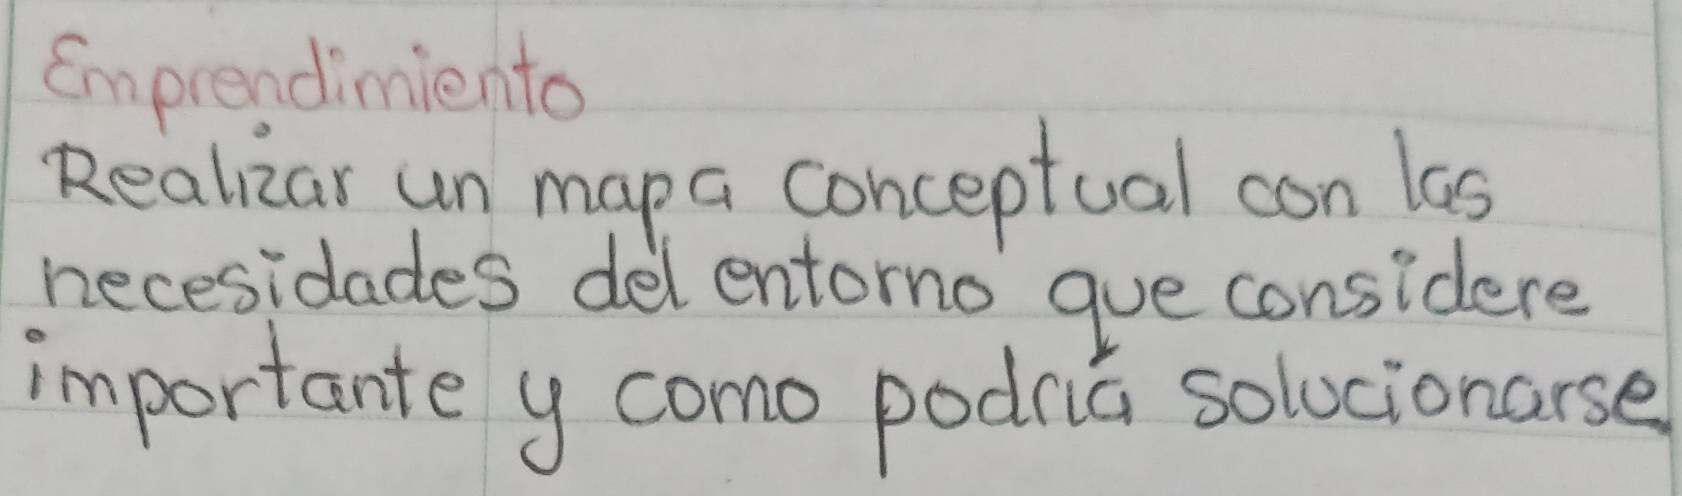 Emprendimiento
Realizar un mapa conceptual con las
necesidades del entorno que considere
importante y como podría solucionarse